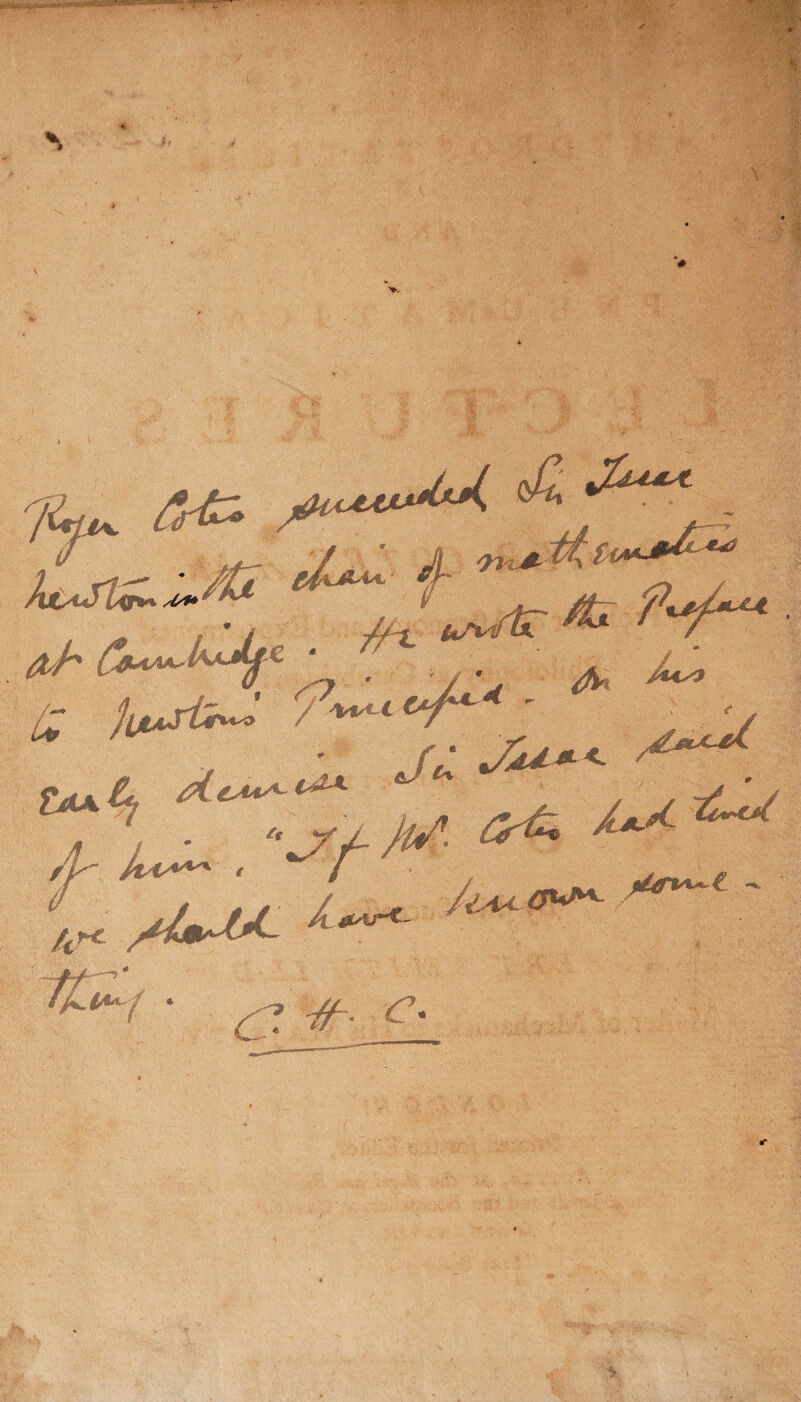 Roger Cotes succeeded Sir Isaac
Newton in the chair of mathematics
at Cambridge. He wrote the Preface
to Newton's Principia. On his
Early demise Sir Isaac said
of him, "If Mr. Cotes had lived
we should have known some-
thing.
C. H. C.